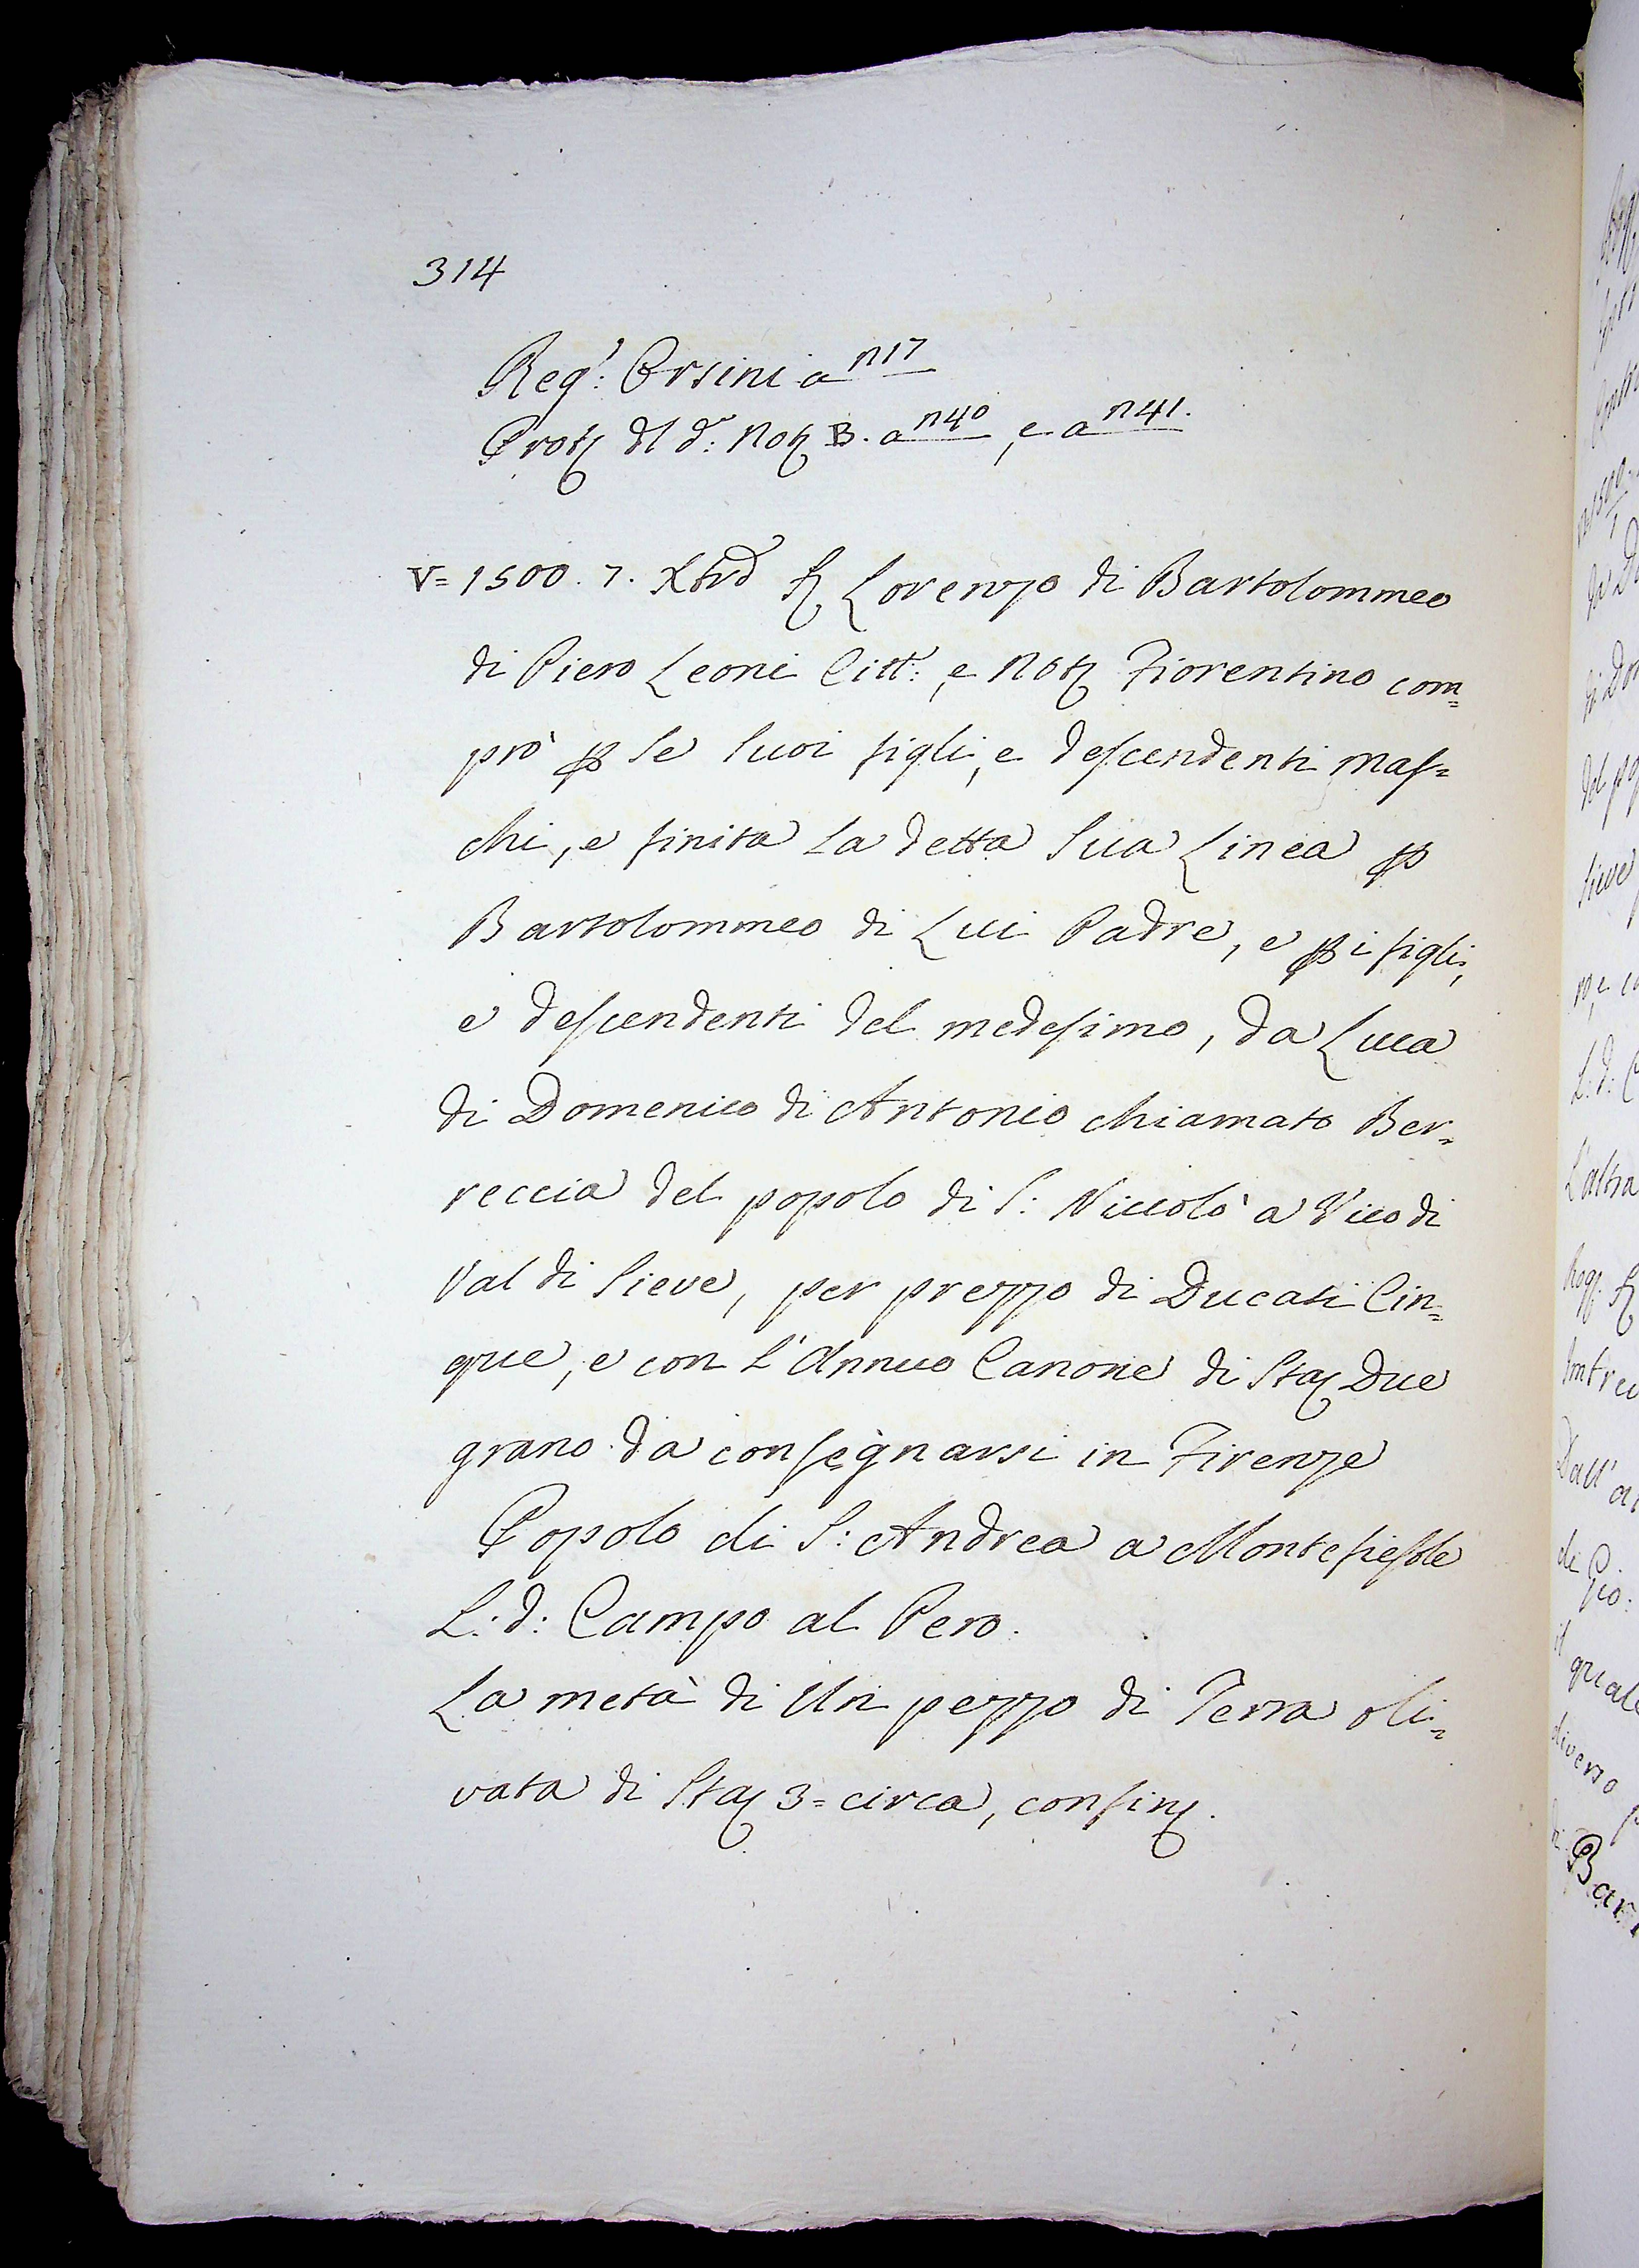 314
Reg.^o: Orsini a n 17
Prot. dl d.^o: Not. B. a n 40, e a n 41.
V= 1500. 7. Xbrè S. Lorenzo di Bartolommeo
di Piero Leoni Citt:, e Not. Fiorentino com=
prò p se suoi figli, e descendenti mas=
chi, e finita la detta sua Linea p
Bartolommeo di Lui Padre, e p i figli,
e descendenti del medesimo, da Luca
di Domenico di Antonio chiamato Ber=
reccia del popolo di S: Niccolò a Vico di
Val di Sieve, per prezzo di Ducati Cin=
que, e con l'Annuo Canone di Sta. Due
grano da consegnarsi in Firenze
Popolo di S: Andrea a Montefiesole
L: d: Campo al Pero.
La metà di Un pezzo di Terra oli=
vata di Sta. 3= circa, confin.